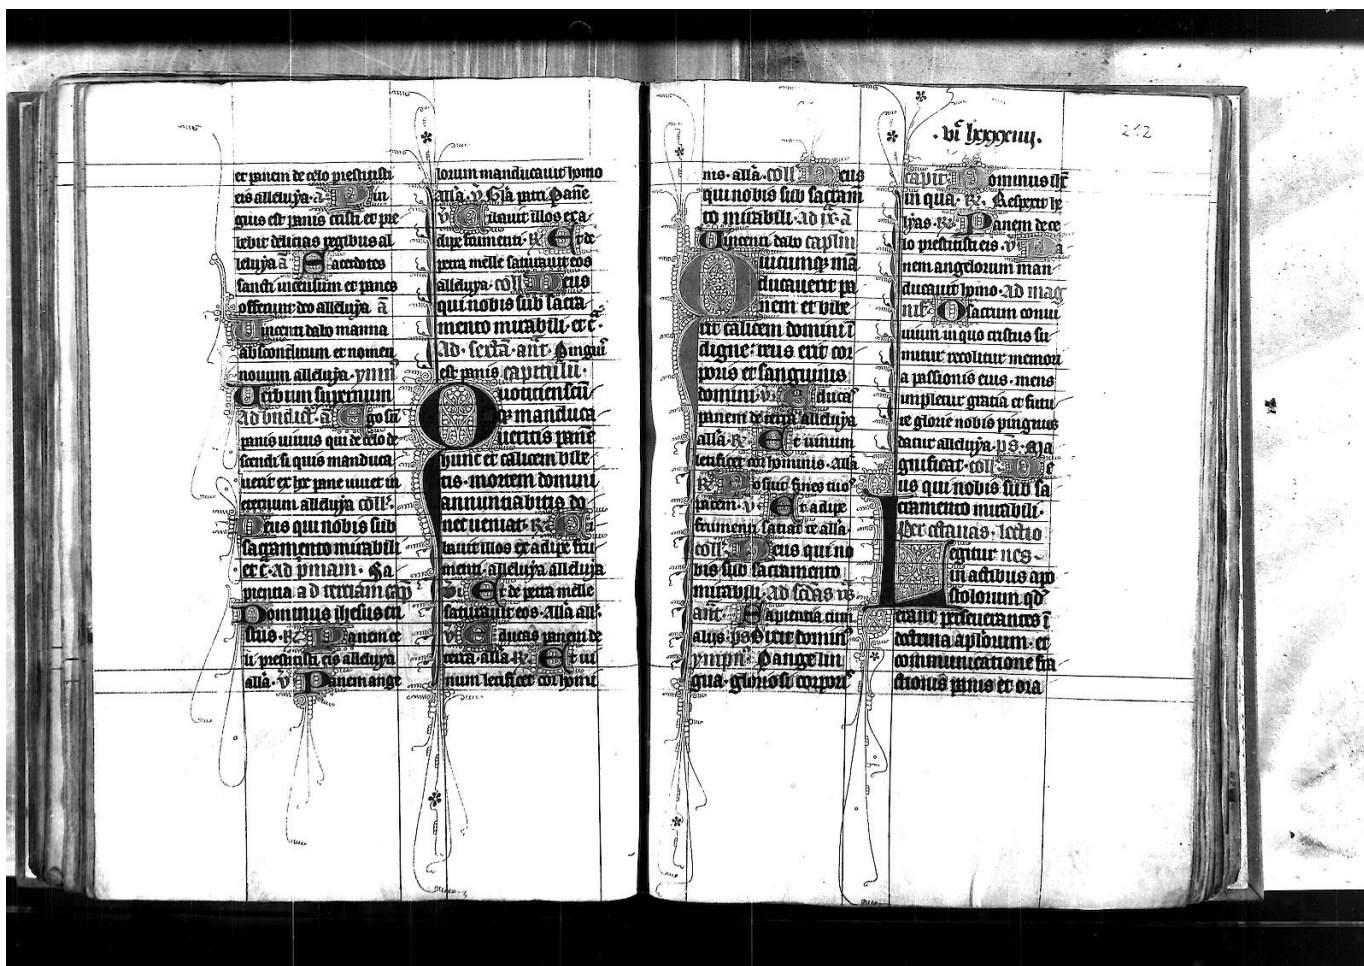 et panem de celo prestitisti
eis alleluya · a̅ Pin
guis est panis cristi et pre
bebit delicias regibus al
leluya a̅ Sacerdotes
sancti incensum et panes
offerunt deo alleluya a̅
Uincenti dabo manna
absconditum et nomen
nouum alleluya · ympn᷒
Uerbum supernum
Ad bndict᷒ · a̅ Ego su̅
panis uiuus qui de celo de
scendi si quis manduca
uerit ex hoc pane uiuet in
eternum alleluya coll᷒
Deus qui nobis sub
sacramento mirabili
et c̅ · Ad p̅mam · Sa
pientia ad terciam cap̅
Dominus ihesus cri
stus · R᷒ Panem ce
li prestitisti eis alleluya
all̅a · v̅ Panem ange
lorum manducauit homo
All̅a · v̅ Gl̅a patri Pane̅
v̅ Cibauit illos exa
dipe frumenti · R᷒ Et de
petra melle saturauit eos
alleluya · coll᷒ Deus
qui nobis sub sacra
mento mirabili · et c̅ ·
Ad · sexta̅ · an̅t · Pingui᷒
est panis capitulu̅ ·
Quotienscu̅
q᷒ manduca
ueritis pane̅
hunc et calicem bibe
tis · mortem domini
annuntiabitis do
nec ueniat · R᷒ Ci
bauit illos ex adipe fru
menti · alleluya alleluya
v̅ Et de petra melle
saturauit eos · All̅a all᷒ ·
v̅ Educas panem de
terra · all̅a R᷒ Et ui
num letificet cor homi
· vi̅ lxxxxiiii ·
212
nis · all̅a · coll᷒ Deus
qui nobis sub sacram̅
to mirabili · Ad ix̅ · a̅
Uincenti dabo capl̅m
Quicumq᷒ ma̅
ducauerit pa
nem et bibe
rit calicem domini i̅
digne · reus erit cor
poris et sanguinis
domini · v̅ Educas᷒
panem de terra alleluya
all̅a · R᷒ Et uinum
letificet cor hominis · All̅a
R᷒ Posuit fines tuos᷒
pacem · v̅ Et adipe
frumenti satiat te all̅a ·
coll᷒ Deus qui no
bis sub sacramento
mirabili · Ad sc̅das v̅s᷒
an̅t · Sapientia cum
alijs · ps̅ Dixit domin᷒
ympn᷒ · Pange lin
gua · gloriosi corpori᷒
capit᷒ Dominus ih̅c
in qua · R᷒ · Respexit he
lyas · R᷒ Panem de ce
lo prestitisti eis · v̅ Pa
nem angelorum man
ducauit homo · Ad mag
nif᷒ · O sacrum conui
uium in quo cristus su
mitur recolitur memori
a passionis eius · mens
impletur gracia et futu
re glorie nobis pingnus
datur alleluya · ps̅ · Ma
gnificat · coll᷒ De
us qui nobis sub sa
cramento mirabili ·
Per octauas · lectio
Legitur nes ·
in actibus apo
stolorum qd᷒
erant perseuerantes i̅
doctrina ap̅lorum · et
communicatione fra
ctionis panis et ora